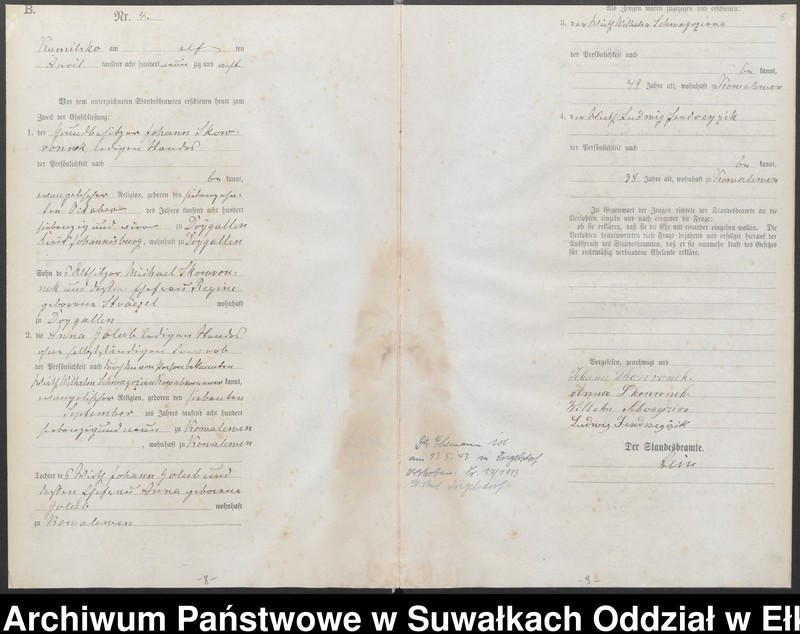 B.
Nr. 4.
Kumilsko am elf ten
April tausend acht hundert neun zig und acht
Vor dem unterzeichneten Standesbeamten erschienen heute zum
Zweck der Eheschließung:
1. der Grundbesitzer Johann Skow-
ronnek, ledigen Standes
der Persönlichkeit nach
be kannt,
evangelischer Religion, geboren den siebenzehn-
ten October des Jahres tausend acht hundert
siebenzig und vier zu Dŏygallen
Kreis Johannisburg, wohnhaft zu Dŏygallen
Sohn des Altsitzer Michael Skowron-
nek und dessen Ehefrau Regine
geborene wohnhaft
zu Dŏygallen
2. die Anna Golub ledigen Standes
ohne selbstständigen Erwerb
der Persönlichkeit nach durch den von Person bekannten
Wirth Wilhelm Schwagozina Kowalewen er kannt,
evangelischer Religion, geboren den siebenten
September des Jahres tausend acht hundert
siebenzig und neun zu Kowalewen
, wohnhaft zu Kowalewen
Tochter des Wirth Johann Golub und
dessen Ehefrau Anna geborene
Golub wohnhaft
zu Kowalewen
-8-
Als Zeugen waren zugezogen und erschienen:
3. der Wirth Wilhelm Schwagozina
der Persönlichkeit nach
be kannt,
49 Jahre alt, wohnhaft zu Kowalewen
4. der Wirth Ludwig Jendreyzik
der Persönlichkeit nach
be kannt,
38 Jahre alt, wohnhaft zu Kowalewen
In Gegenwart der Zeugen richtete der Standesbeamte an die
Verlobten einzeln und nach einander die Frage:
ob sie erklären, daß sie die Ehe mit einander eingehen wollen. Die
Verlobten beantworteten diese Frage bejahend und erfolgte hierauf der
Ausspruch des Standesbeamten, daß er sie nunmehr kraft des Gesetzes
für rechtmäßig verbundene Eheleute erkläre.
Vorgelesen, genehmigt und
Johann Skonronek.
Anna Skonronek
Wilhelm Schwagzina
Ludwig Jendreyzik
Der Standesbeamte.
Der Ehemann ist
am 23.5.43 in
verstorben. Nr. 29/1943
-9-
Archiwum Państwowe w Suwałkach Oddział w Ełk